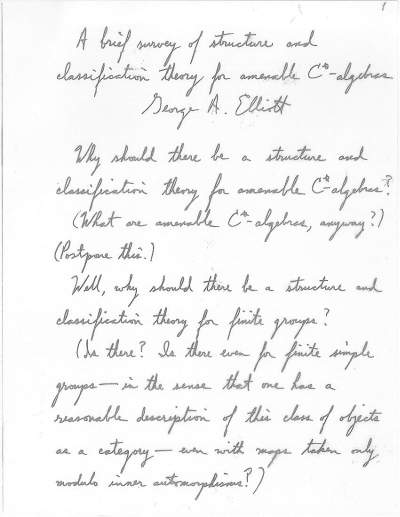 1
A brief survey of structure and
classification theory for amenable C*-algebras
George A. Elliott
Why should there be a structure and
classification theory for amenable C*-algebras?
(What are amenable C*-algebras, anyway?)
(Postpone this.)
Well, why should there be a structure and
classification theory for finite groups?
(Is there? Is there even for finite simple
groups — in the sense that one has a
reasonable description of this class of objects
as a category — even with maps taken only
modulo inner automorphisms?)